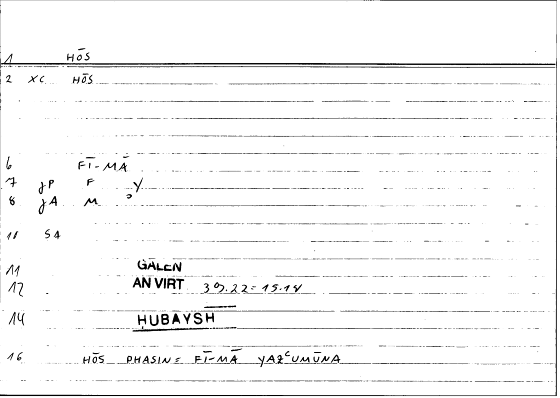 1 HŌS
2 XC HŌS
6 FĪ-MĀ
7 JP F Y
8 JA M
10 SA
11 GALEN
12 AN VIRT 39.22 = 15.18
14 HUBAYSH
16 HŌS PHASIN = FĪ-MĀ YAZᶜUMŪNA